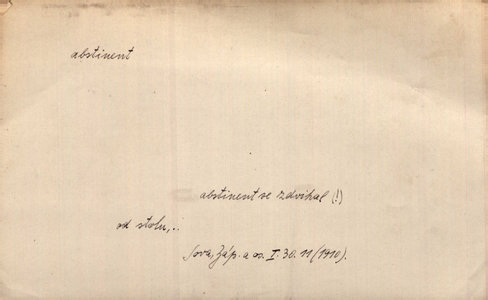 abstinent
abstinent se zdvihal (!)
od stolu,..
Sova, Záp. a os. I. 30. 11 (1910).